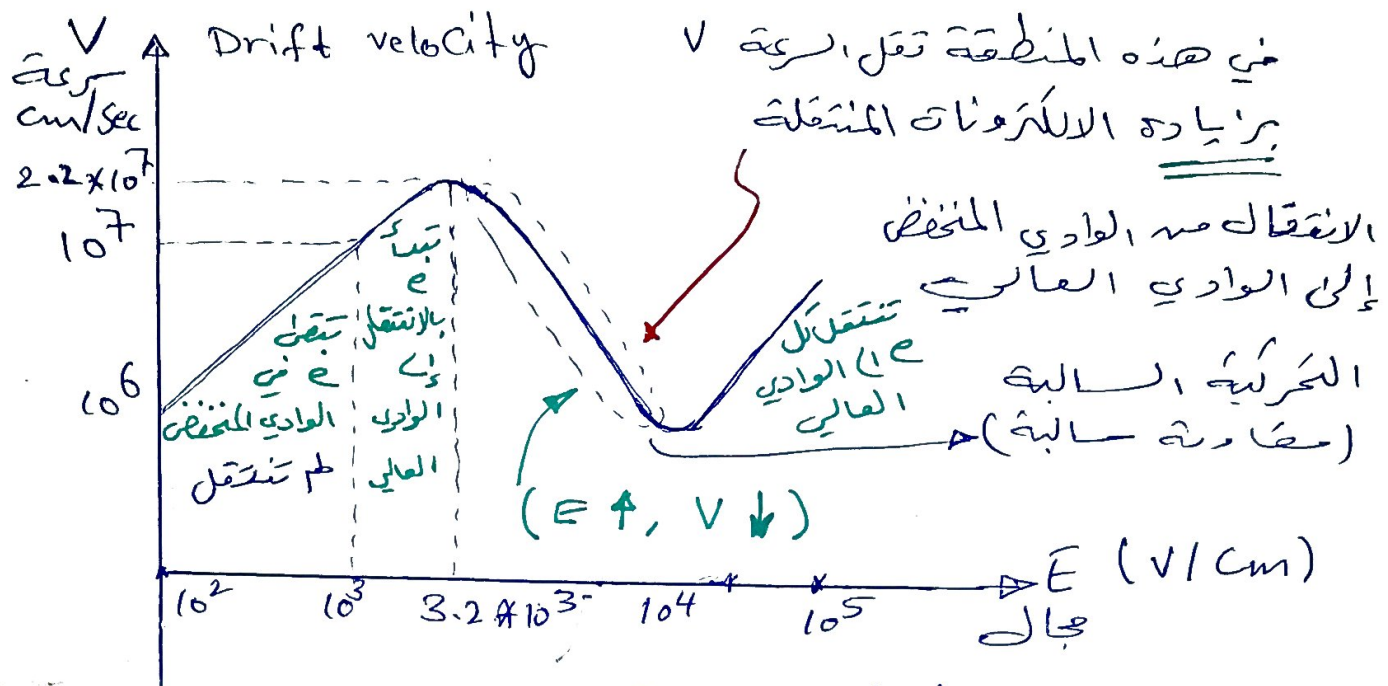 V
سرعة
cm/sec
Drift velocity
في هذه المنطقة تقل السرعة V
بزيادة الالكترونات المنتقلة
الانتقال من الوادي المنخفض
إلى الوادي العالي
التحركية السالبة
(مقاومة سالبة)
2.2×10⁷
10⁷
10⁶
تبقى
e في
الوادي المنخفض
لم تنتقل
تبدأ
e
بالانتقال
إلى
الوادي
العالي
تنتقل كل
e الى الوادي
العالي
(E ↑, V ↓)
10²
10³
3.2×10³
10⁴
10⁵
E (V/cm)
مجال